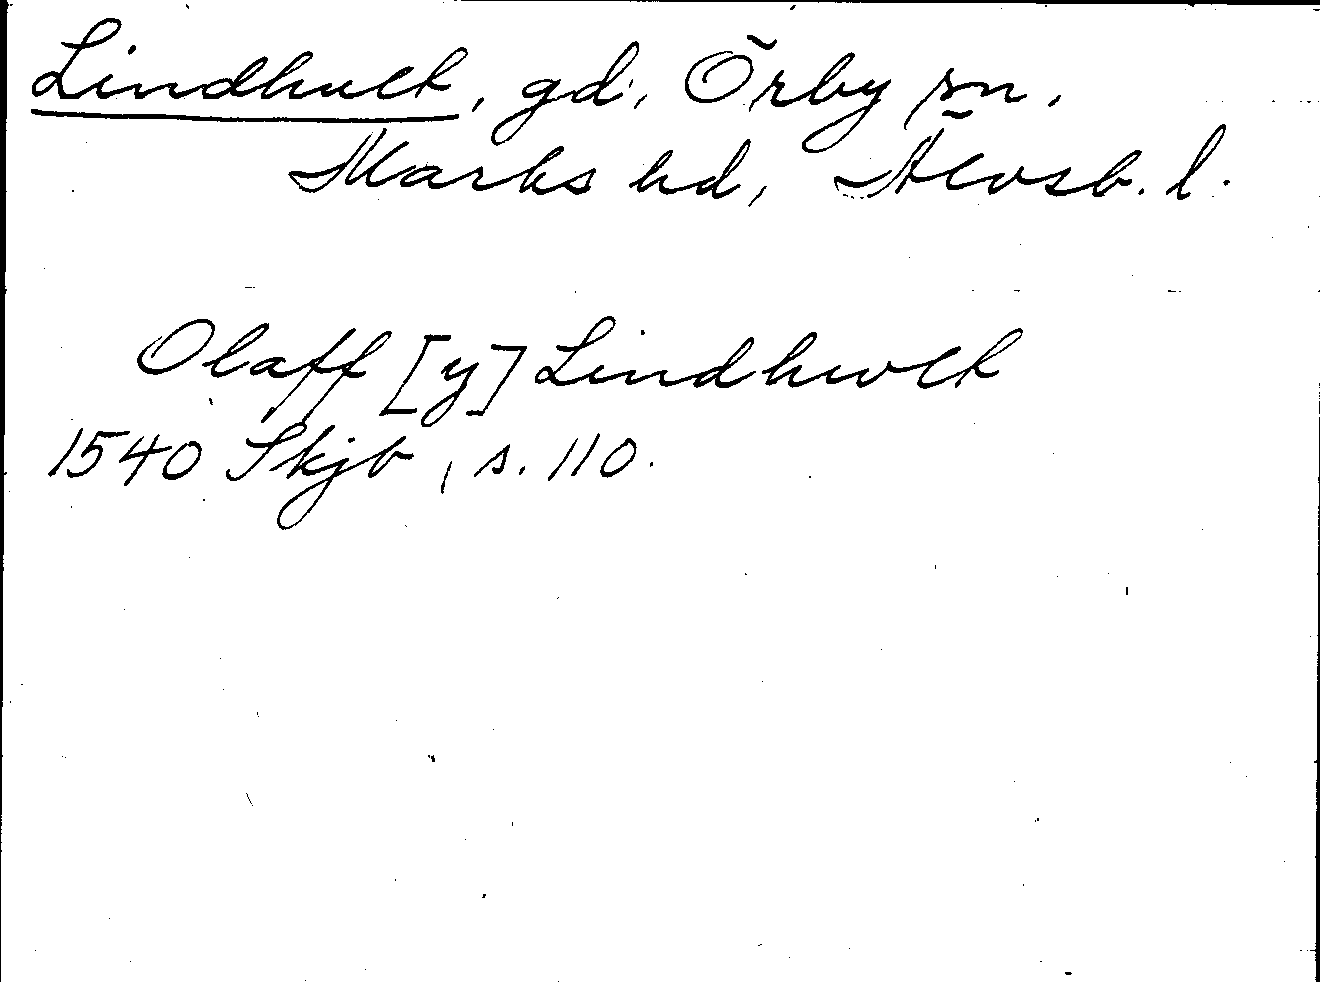 Lindhult, gd, Örby sn,
Marks hd, Älvsb. l.
Olaff [y] Lindhwlt
1540 Skjb, s. 110.